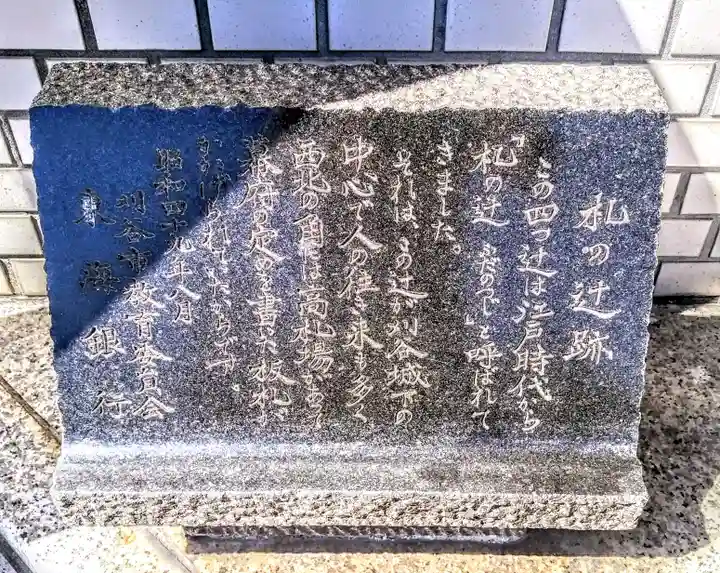 札の辻跡
この四つ辻は江戸時代から
「札の辻 ふだのつじ」と呼ばれて
きました。
それは、この辻が刈谷城下の
中心で人の往き来も多く
西北の角には高札場があって
幕府の定めを書いた板札が
かかげられていたからです。
昭和四十九年八月
刈谷市教育委員会
東海銀行